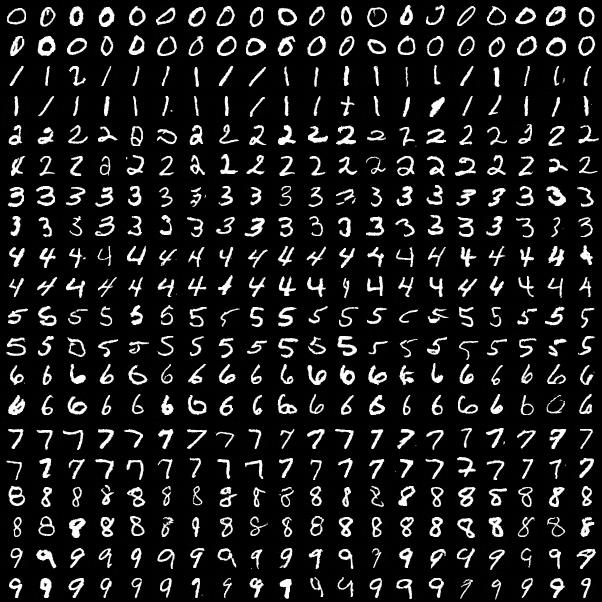 0 0 0 0 0 0 0 0 0 0 0 0 0 0 0 0 0 0 0 0
0 0 0 0 0 0 0 0 0 0 0 0 0 0 0 0 0 0 0 0
1 1 2 1 1 1 1 1 1 1 1 1 1 1 1 1 1 1 1 1
1 1 1 1 1 1 1 1 1 1 1 1 1 1 1 1 1 1 1
2 2 2 2 2 2 2 2 2 2 2 2 2 2 2 2 2 2 2 2
2 2 2 2 2 2 2 2 2 2 2 2 2 2 2 2 2 2 2 2
3 3 3 3 3 3 3 3 3 3 3 3 3 3 3 3 3 3 3 3
3 3 3 3 3 3 3 3 3 3 3 3 3 3 3 3 3 3 3 3
4 4 4 4 4 4 4 4 4 4 4 4 4 4 4 4 4 4 4 4
4 4 4 4 4 4 4 4 4 4 4 4 4 4 4 4 4 4 4 4
5 5 5 5 5 5 5 5 5 5 5 5 5 5 5 5 5 5 5
5 5 5 5 5 5 5 5 5 5 5 5 5 5 5 5 5 5 5
6 6 6 6 6 6 6 6 6 6 6 6 6 6 6 6 6 6 6 6
6 6 6 6 6 6 6 6 6 6 6 6 6 6 6 6 6 6 6
7 7 7 7 7 7 7 7 7 7 7 7 7 7 7 7 7 7 7 7
7 7 7 7 7 7 7 7 7 7 7 7 7 7 7 7 7 7 7 7
8 8 8 8 8 8 8 8 8 8 8 8 8 8 8 8 8 8 8 8
8 8 8 8 8 8 8 8 8 8 8 8 8 8 8 8 8 8 8
9 9 9 9 9 9 9 9 9 9 9 9 9 9 9 9 9 9 9 9
9 9 9 9 9 9 9 9 9 9 9 9 9 9 9 9 9 9 9 9